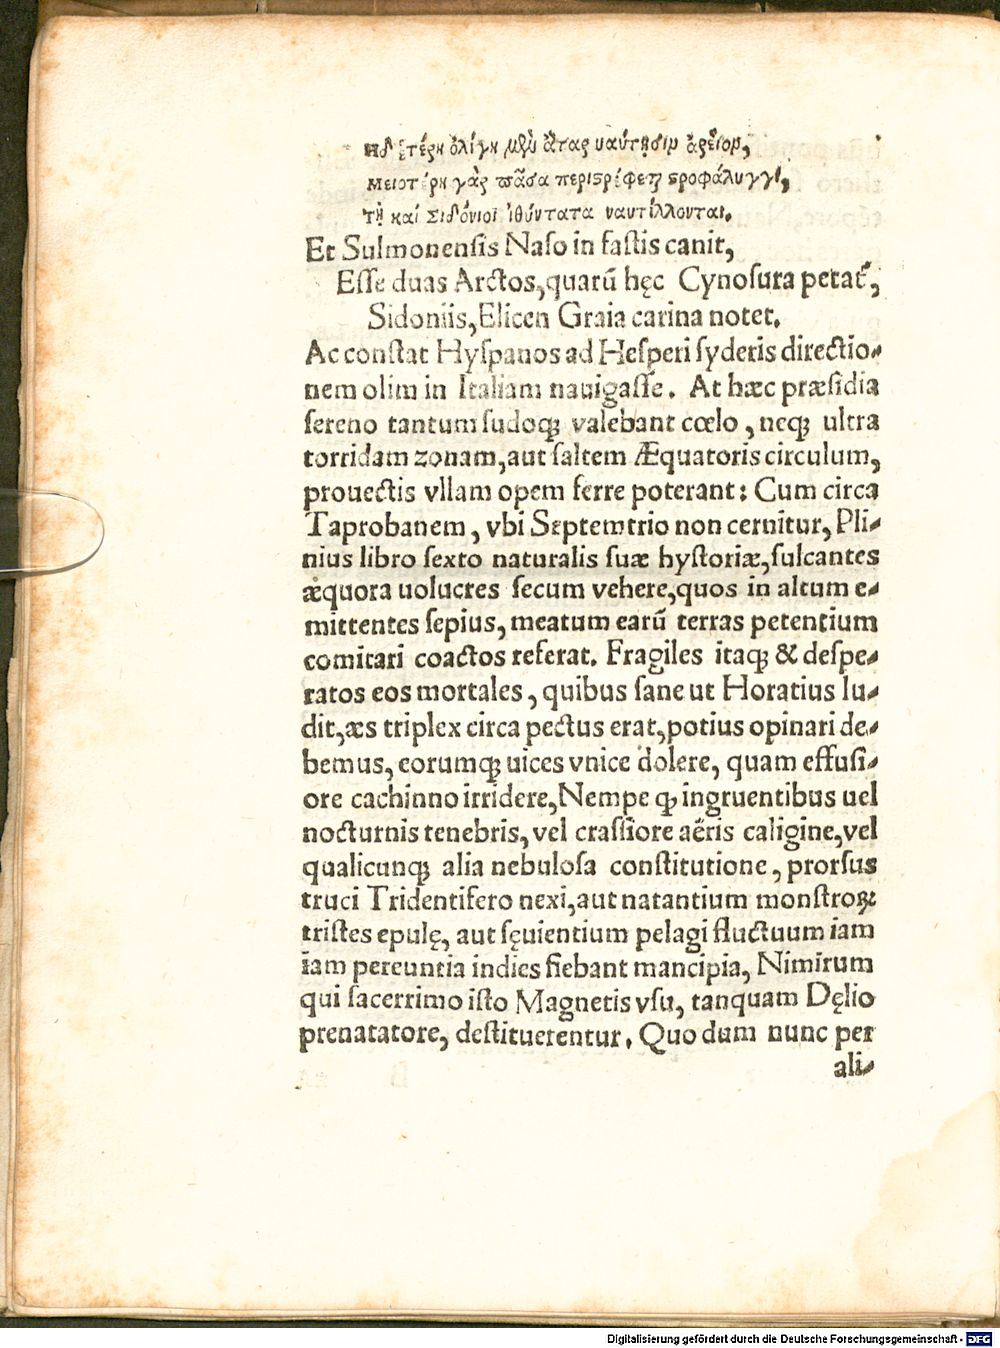 Ηδ' ἑτέρη ὀλίγη μὲν ἀτὰρ ναύτῃσιν ἀρείον,
Μειοτέρη γὰρ πᾶσα περιστρέφεται στροφάλιγγι,
Τῇ καί Σιδόνιοι ἰθύντατα ναυτίλλονται.
Et Sulmonenſis Naſo in faſtis canit,
Eſſe duas Arctos,quarū hęc Cynoſura petat',
Sidoniis,Elicen Graia carina notet.
Ac conſtat Hyſpanos ad Heſperi ſyderis directio⸗
nem olim in Italiam nauigaſſe. At hæc præſidia
ſereno tantum ſudoqꝫ valebant cœlo, neqꝫ ultra
torridam zonam,aut ſaltem Æquatoris circulum,
prouectis vllam opem ferre poterant: Cum circa
Taprobanem, vbi Septemtrio non cernitur, Pli⸗
nius libro ſexto naturalis ſuæ hyſtoriæ,ſulcantes
æquora uolucres ſecum vehere,quos in altum e⸗
mittentes ſepius, meatum earū terras petentium
comitari coactos referat. Fragiles itaqꝫ & deſpe⸗
ratos eos mortales, quibus ſane ut Horatius lu⸗
dit,æs triplex circa pectus erat,potius opinari de⸗
bemus, eorumqꝫ uices vnice dolere, quam effuſi⸗
ore cachinno irridere,Nempe qꝫ ingruentibus uel
nocturnis tenebris, vel craſſiore aëris caligine,vel
qualicunqꝫ alia nebuloſa conſtitutione, prorſus
truci Tridentifero nexi,aut natantium monſtroꝝ
triſtes epulę, aut ſęuientium pelagi fluctuum iam
iam pereuntia indies fiebant mancipia, Nimirum
qui ſacerrimo iſto Magnetis vſu, tanquam Dęlio
prenatatore, deſtituerentur. Quo dum nunc per
ali⸗
Digitalisierung gefördert durch die Deutsche Forschungsgemeinschaft - DFG